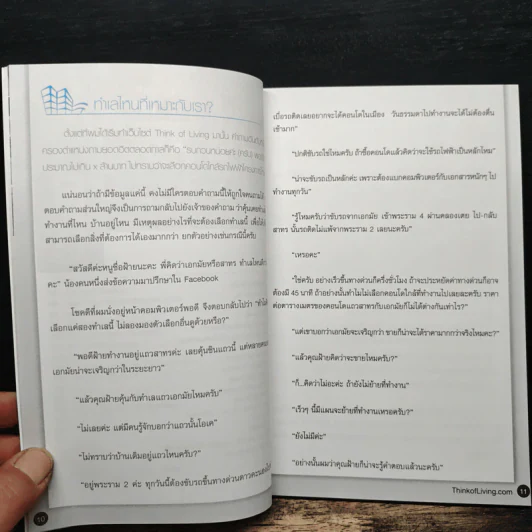 ทำเลไหนที่เหมาะกับเรา?
ตั้งแต่ที่ผมได้เริ่มทำเว็บไซต์ Think of Living มานั้น
ครองตำแหน่งถามยอดฮิตตลอดกาลก็คือ
ประมาณไม่เกิน x ล้านบาท
แน่นอนว่าถ้ามีข้อมูลแค่นี้ คงไม่มีใครตอบคำถามนี้ให้ถูกใจคนถามได้
ตอบคำถามส่วนใหญ่จึงเป็นการถามกลับไปยังเจ้าของคำถามว่าคุ้นเคย
ทำงานที่ไหน บ้านอยู่ไหน มีเหตุผลอย่างไรที่จะต้องเลือกทำเลนี้
สามารถเลือกสิ่งที่ต้องการได้เองมากกว่า ยกตัวอย่างเช่นกรณีนี้ครับ
“สวัสดีค่ะหนูชื่อฝ้ายนะคะ พี่คิดว่าเอกมัยหรือสาทร ทำเลไหนดี
คะ” น้องคนหนึ่งส่งข้อความมาปรึกษาใน Facebook
โชคดีที่ผมนั่งอยู่หน้าคอมพิวเตอร์พอดี จึงตอบกลับไปว่า
เลือกแค่สองทำเลนี้ ไม่ลองมองตัวเลือกอื่นดูด้วยหรือ?”
“พอดีฝ้ายทำงานอยู่แถวสาทรค่ะ เลยคุ้นชินแถวนี้
เอกมัยน่าจะเจริญกว่าในระยะยาว”
“แล้วคุณฝ้ายคุ้นกับทำเลแถวเอกมัยไหมครับ”
“ไม่เลยค่ะ แต่มีคนรู้จักบอกว่าแถวนั้นโอเค”
“ไม่ทราบว่าบ้านเดิมอยู่แถวไหนครับ?”
“อยู่พระราม 2 ค่ะ ทุกวันนี้ต้องขับรถขึ้นทางด่วนดาวคะนอง
10
เบื่อรถติดเลยอยากจะได้คอนโดในเมือง วันธรรมดาไปทำงานจะได้ไม่ต้องตื่น
เช้ามาก”
“ปกติขับรถใช่ไหมครับ ถ้าซื้อคอนโดแล้วคิดว่าจะใช้รถไฟฟ้าเป็นหลักไหม”
“น่าจะขับรถเป็นหลักค่ะ เพราะต้องแบกคอมพิวเตอร์กับเอกสารหนักๆ ไป
ทำงานทุกวัน”
“รู้ไหมครับว่าขับรถจากเอกมัย เข้าพระราม 4 ผ่านคลองเตย ไป-กลับ
สาทร นั้นรถติดไม่แพ้จากพระราม 2 เลยนะครับ”
“เหรอคะ”
“ใช่ครับ อย่างเร็วขึ้นทางด่วนก็ครึ่งชั่วโมง ถ้าจะประหยัดค่าทางด่วนก็อาจ
ต้องมี 45 นาที ถ้าอย่างนั้นทำไมไม่เลือกคอนโดใกล้ที่ทำงานไปเลยล่ะครับ ราคา
ต่อตารางเมตรของคอนโดแถวสาทรกับเอกมัยก็ไม่ได้ต่างกันเท่าไร?”
“แต่เขาบอกว่าเอกมัยจะเจริญกว่า ขายก็น่าจะได้ราคามากกว่าจริงไหมคะ?”
“แล้วคุณฝ้ายคิดว่าจะขายไหมครับ?”
“ก็..คิดว่าไม่อะค่ะ ถ้ายังไม่ย้ายที่ทำงาน”
“เร็วๆ นี้มีแผนจะย้ายที่ทำงานเหรอครับ?”
“ยังไม่มีค่ะ”
“อย่างนั้นผมว่าคุณฝ้ายก็น่าจะรู้คำตอบแล้วนะครับ”
ThinkofLiving.com
11